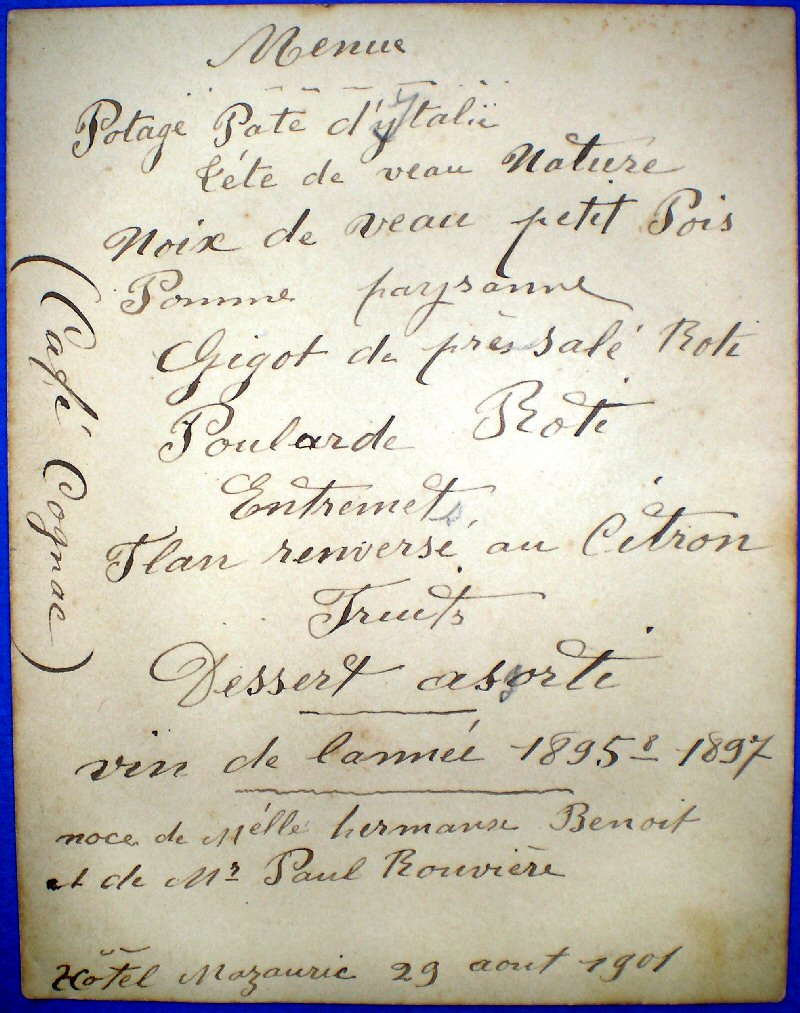 Menue
Potage Pate d'ytalie
téte de veau Nature
Noix de veau petit Pois
Pomme paysanne
Gigot de prés salé Roti
Poularde Roti
Entremets
Flan renversé au Citron
Fruits
Dessert assorti
vin de lannée 1895 & 1897
noce de Melle hermanse Benoit
et de Mr Paul Rouvière
Hôtel Mazauric 29 aout 1901
(Café Cognac)